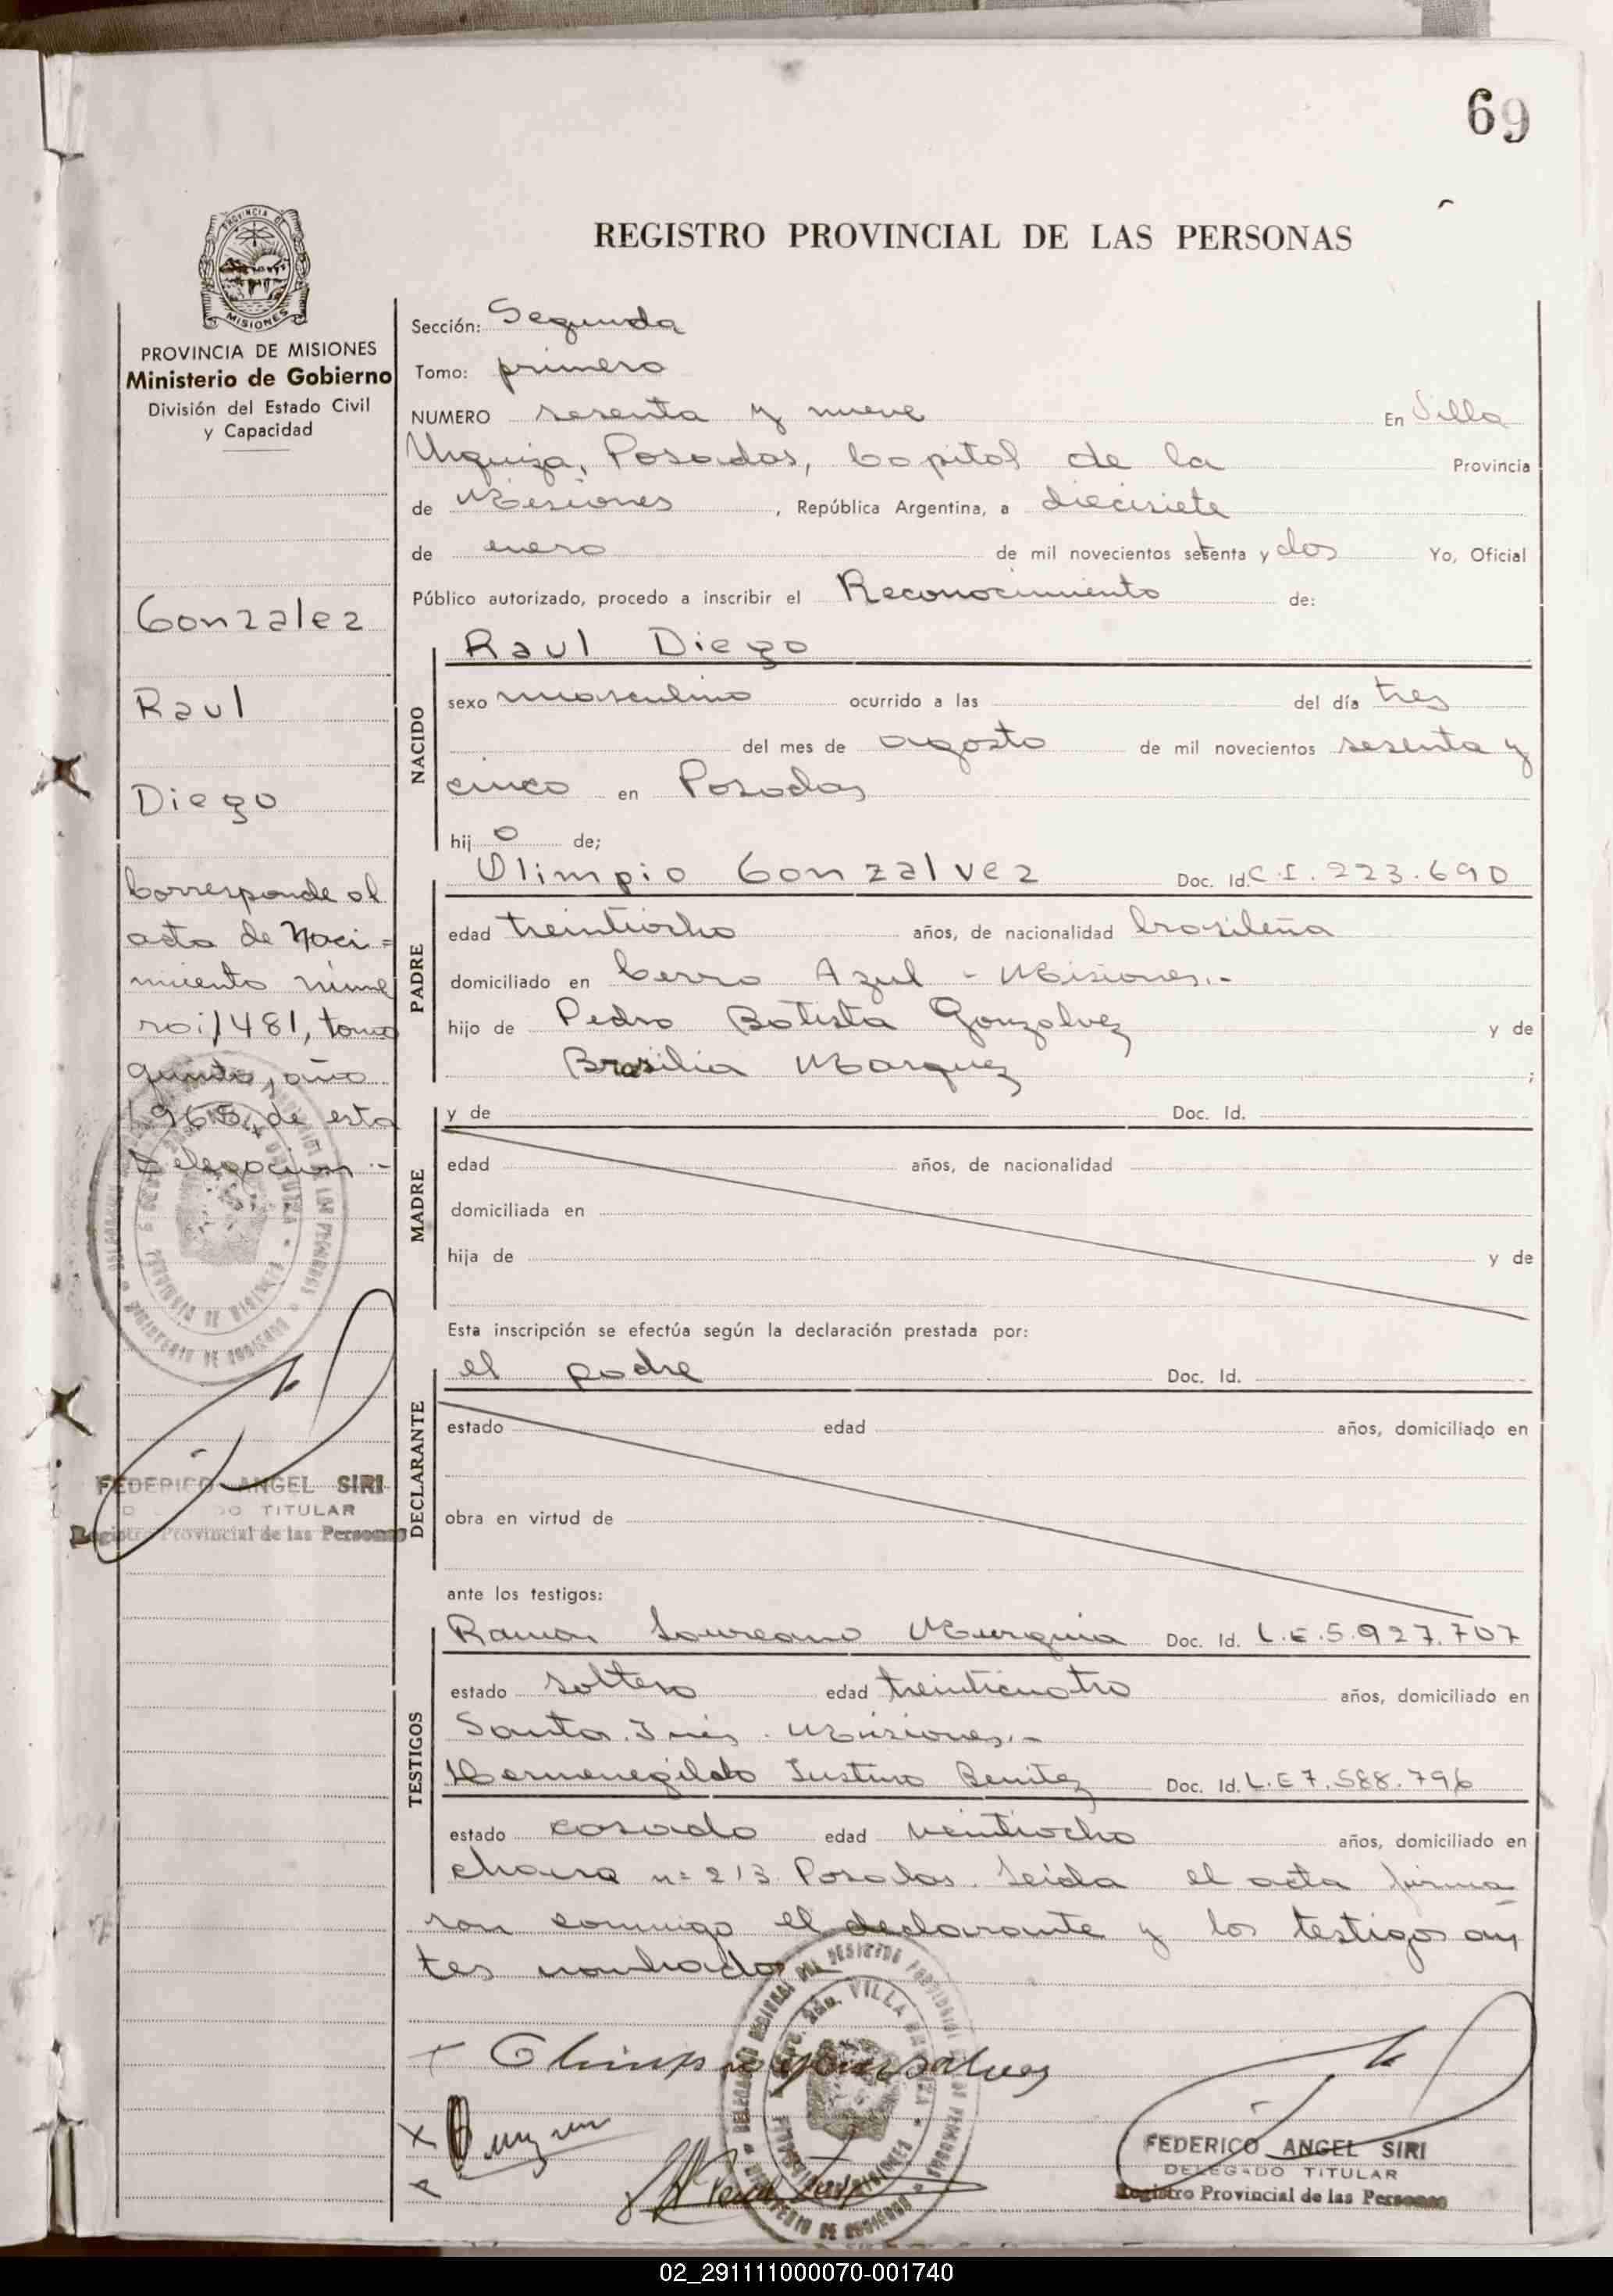 69
REGISTRO PROVINCIAL DE LAS PERSONAS
PROVINCIA DE MISIONES
PROVINCIA DE MISIONES
Ministerio de Gobierno
División del Estado Civil
y Capacidad
Gonzalez
Raul
Diego
Corresponde al
acta de Naci=
miento núme
ro: 1481, tomo
quinto, año
1965, de esta
Delegacion.-
FEDERICO ANGEL SIRI
TITULAR
Registro Provincial de las Personas
Sección: Segunda
Tomo: primero
NUMERO sesenta y nueve En Villa
Urquiza, Posadas, Capital de la Provincia
de Misiones, República Argentina, a diecisiete
de enero de mil novecientos setenta y dos Yo, Oficial
Público autorizado, procedo a inscribir el Reconocimiento de:
NACIDO
Raul Diego
sexo masculino ocurrido a las del día tres
del mes de agosto de mil novecientos sesenta y
cinco en Posadas
hijo de;
PADRE
Olimpio Gonzalvez Doc. Id. C.I. 223.690
edad treintiocho años, de nacionalidad brasileña
domiciliado en Cerro Azul - Misiones.-
hijo de Pedro Batista Gonzalvez y de
Brasilia Marquez ;
MADRE
y de Doc. Id.
edad años, de nacionalidad
domiciliada en
hija de y de
Esta inscripción se efectúa según la declaración prestada por:
DECLARANTE
el padre Doc. Id.
estado edad años, domiciliado en
obra en virtud de
ante los testigos:
TESTIGOS
Ramon Laureano Murguia Doc. Id. L.E.5.927.707
estado soltero edad treinticuatro años, domiciliado en
Santa Inés - Misiones.-
Hermenegildo Justino Benitez Doc. Id. L.E 7.588.796
estado casado edad veintiocho años, domiciliado en
chacra nº 213 Posadas. Leida el acta firma
ron conmigo el declarante y los testigos an
tes nombrados
Olimpio Gonsalves
FEDERICO ANGEL SIRI
DELEGADO TITULAR
Registro Provincial de las Personas
02_291111000070-001740